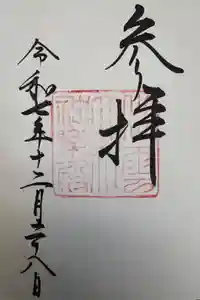 参拝
令和元年十二月二十八日